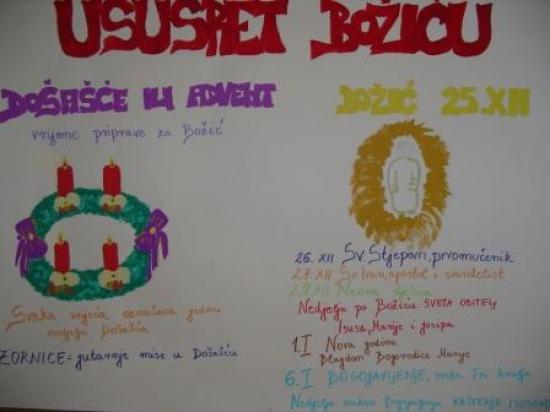 USUSRET BOŽIĆU
DOŠAŠĆE ILI ADVENT
vrijeme priprave za Božić
Svaka svijeća označava jednu
nedjelju Došašća
ZORNICE = jutarnje mise u Došašću
BOŽIĆ 25.XII
26. XII Sv. Stjepan, prvomučenik
27. XII Sv. Ivan, apostol i evanđelist
28. XII Nevina dječica
Nedjelja po Božiću SVETA OBITELJ
Isusa, Marije i Josipa
1. I Nova godina
Blagdan Bogorodice Marije
6. I BOGOJAVLJENJE, sveta Tri kralja
Nedjelja nakon Bogojavljenja KRŠTENJE ISUSOVO